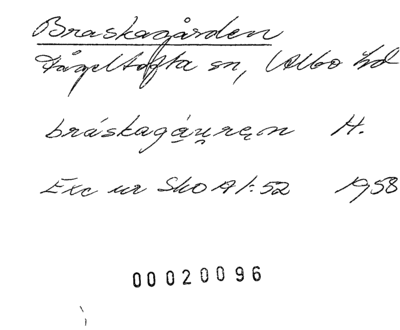 Braskagården
Fågeltofta sn, Albo hd
bráskagạ́u̯rẹn H.
Exc ur SkOA 1:52 1958
00020096